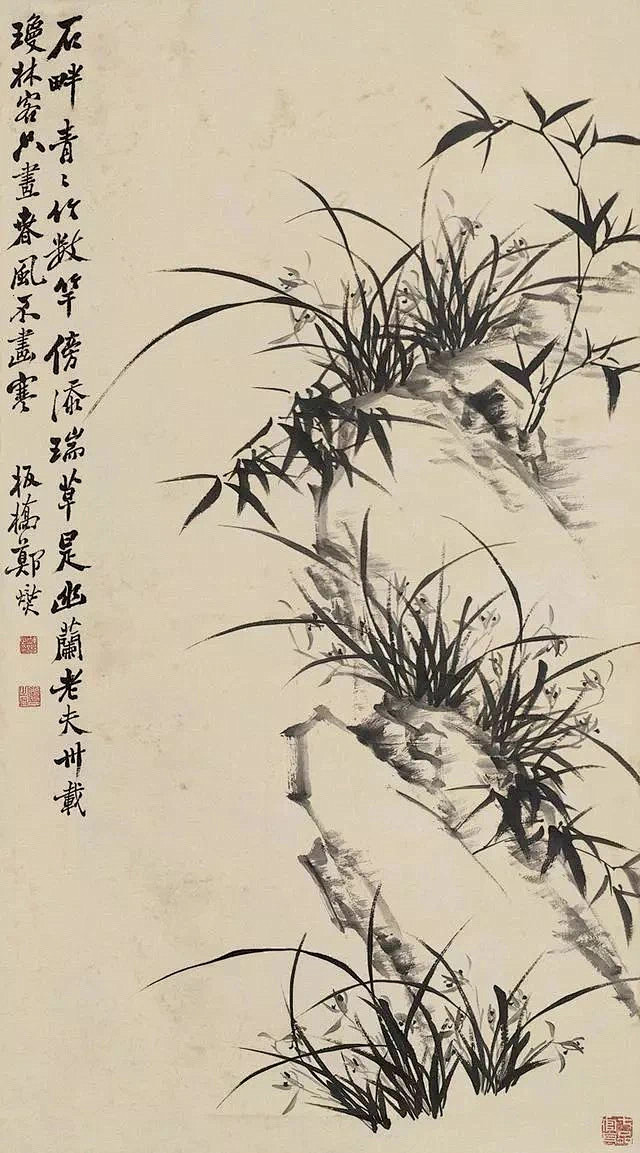 石畔青〻竹数竿傍添瑞草是幽蘭老夫卅載
瓊林客只畫春風不畫寒 板橋鄭燮